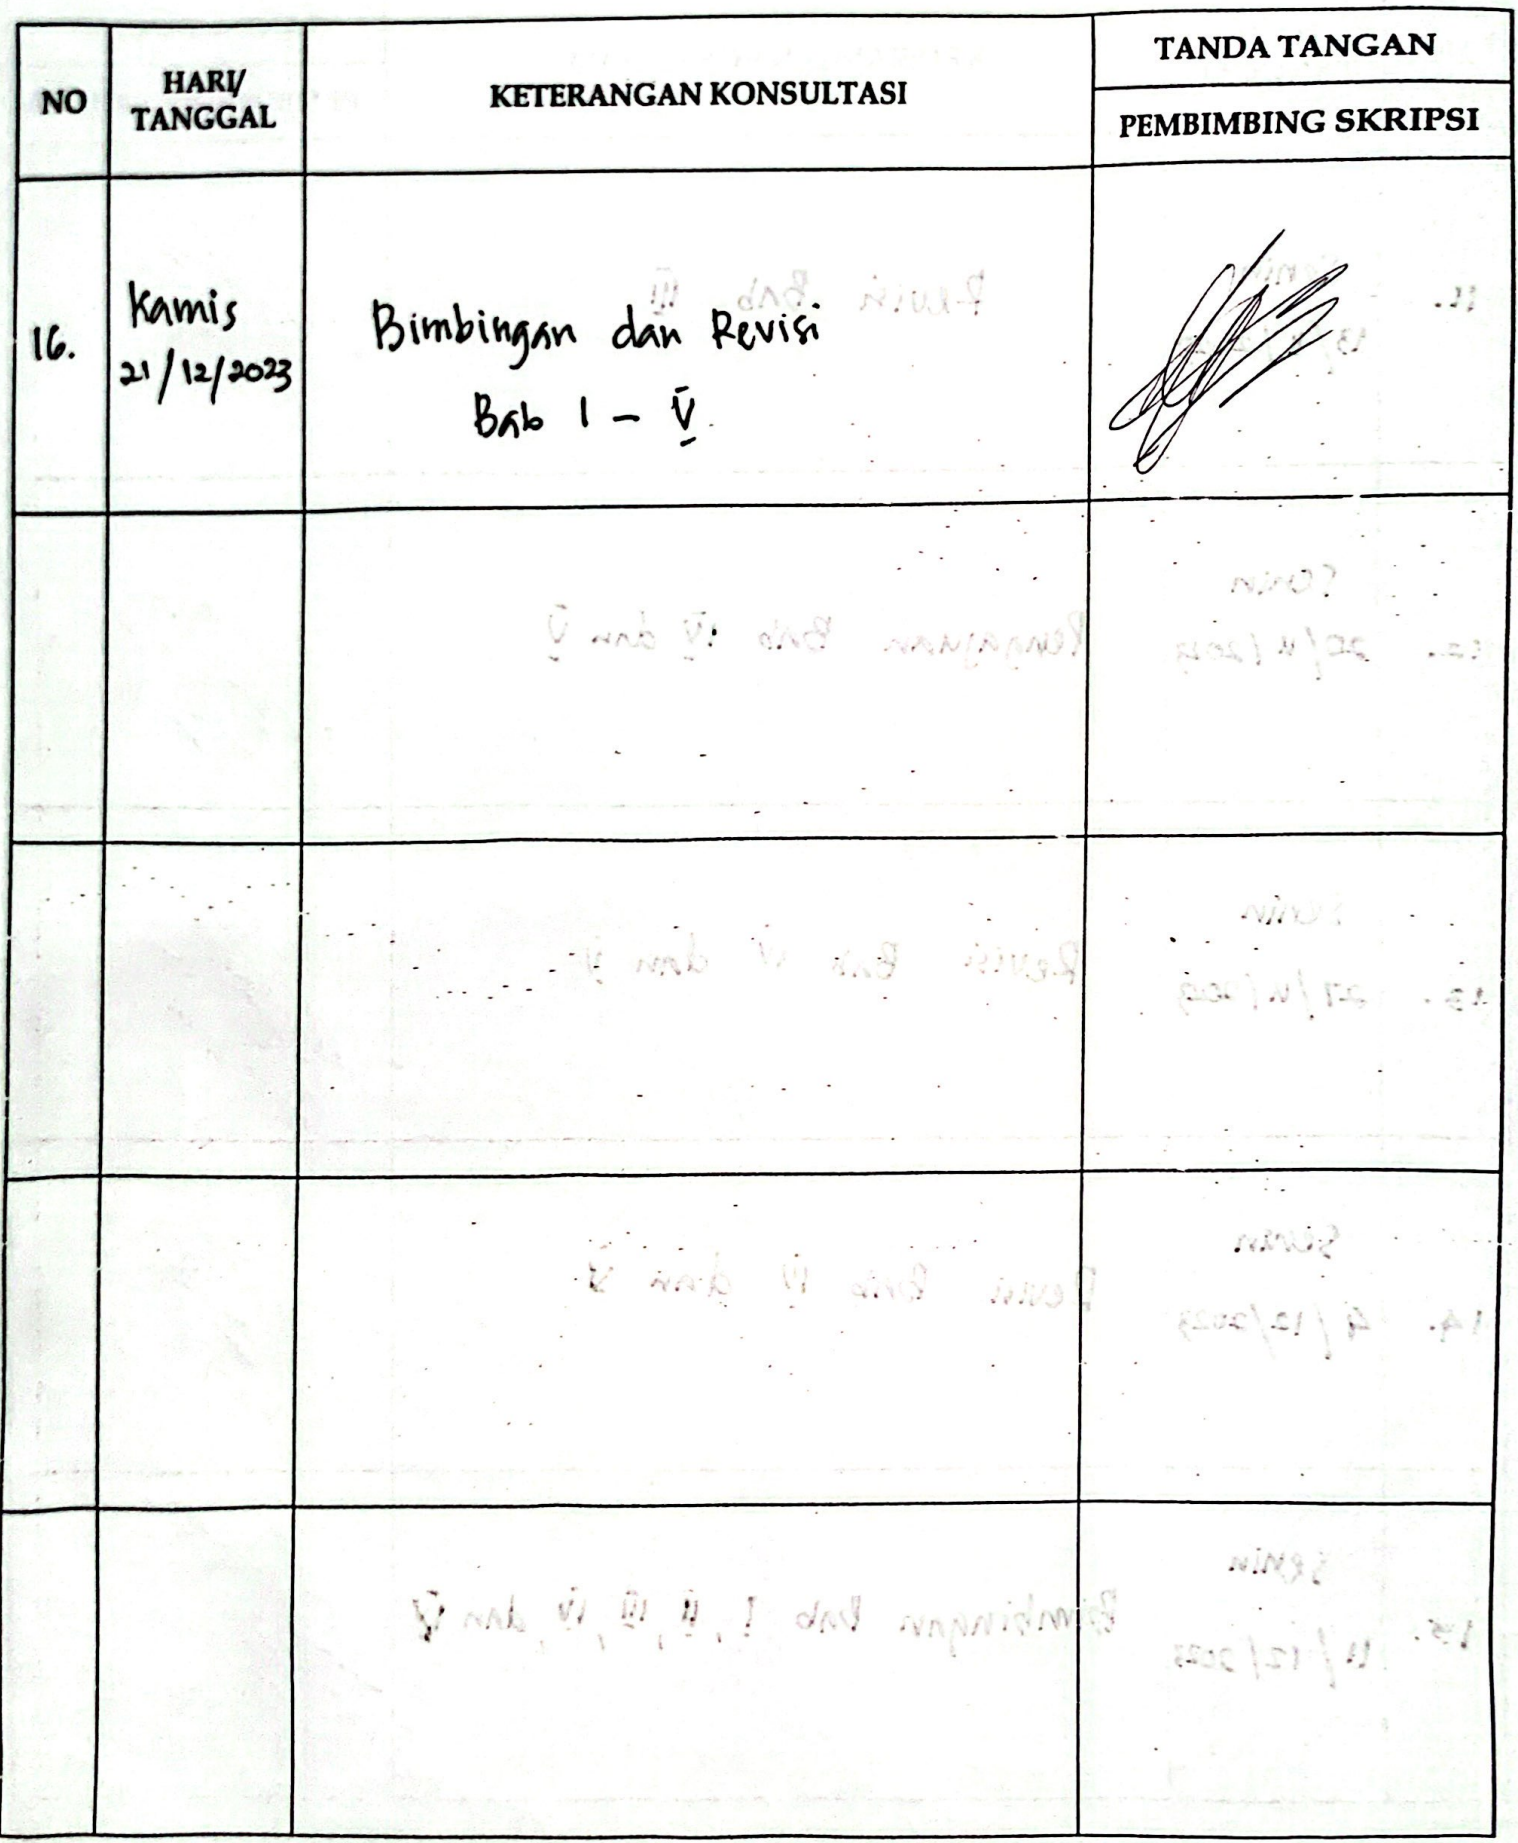 NO
HARI/
TANGGAL
KETERANGAN KONSULTASI
TANDA TANGAN
PEMBIMBING SKRIPSI
16.
Kamis
21/12/2023
Bimbingan dan Revisi
Bab I - V